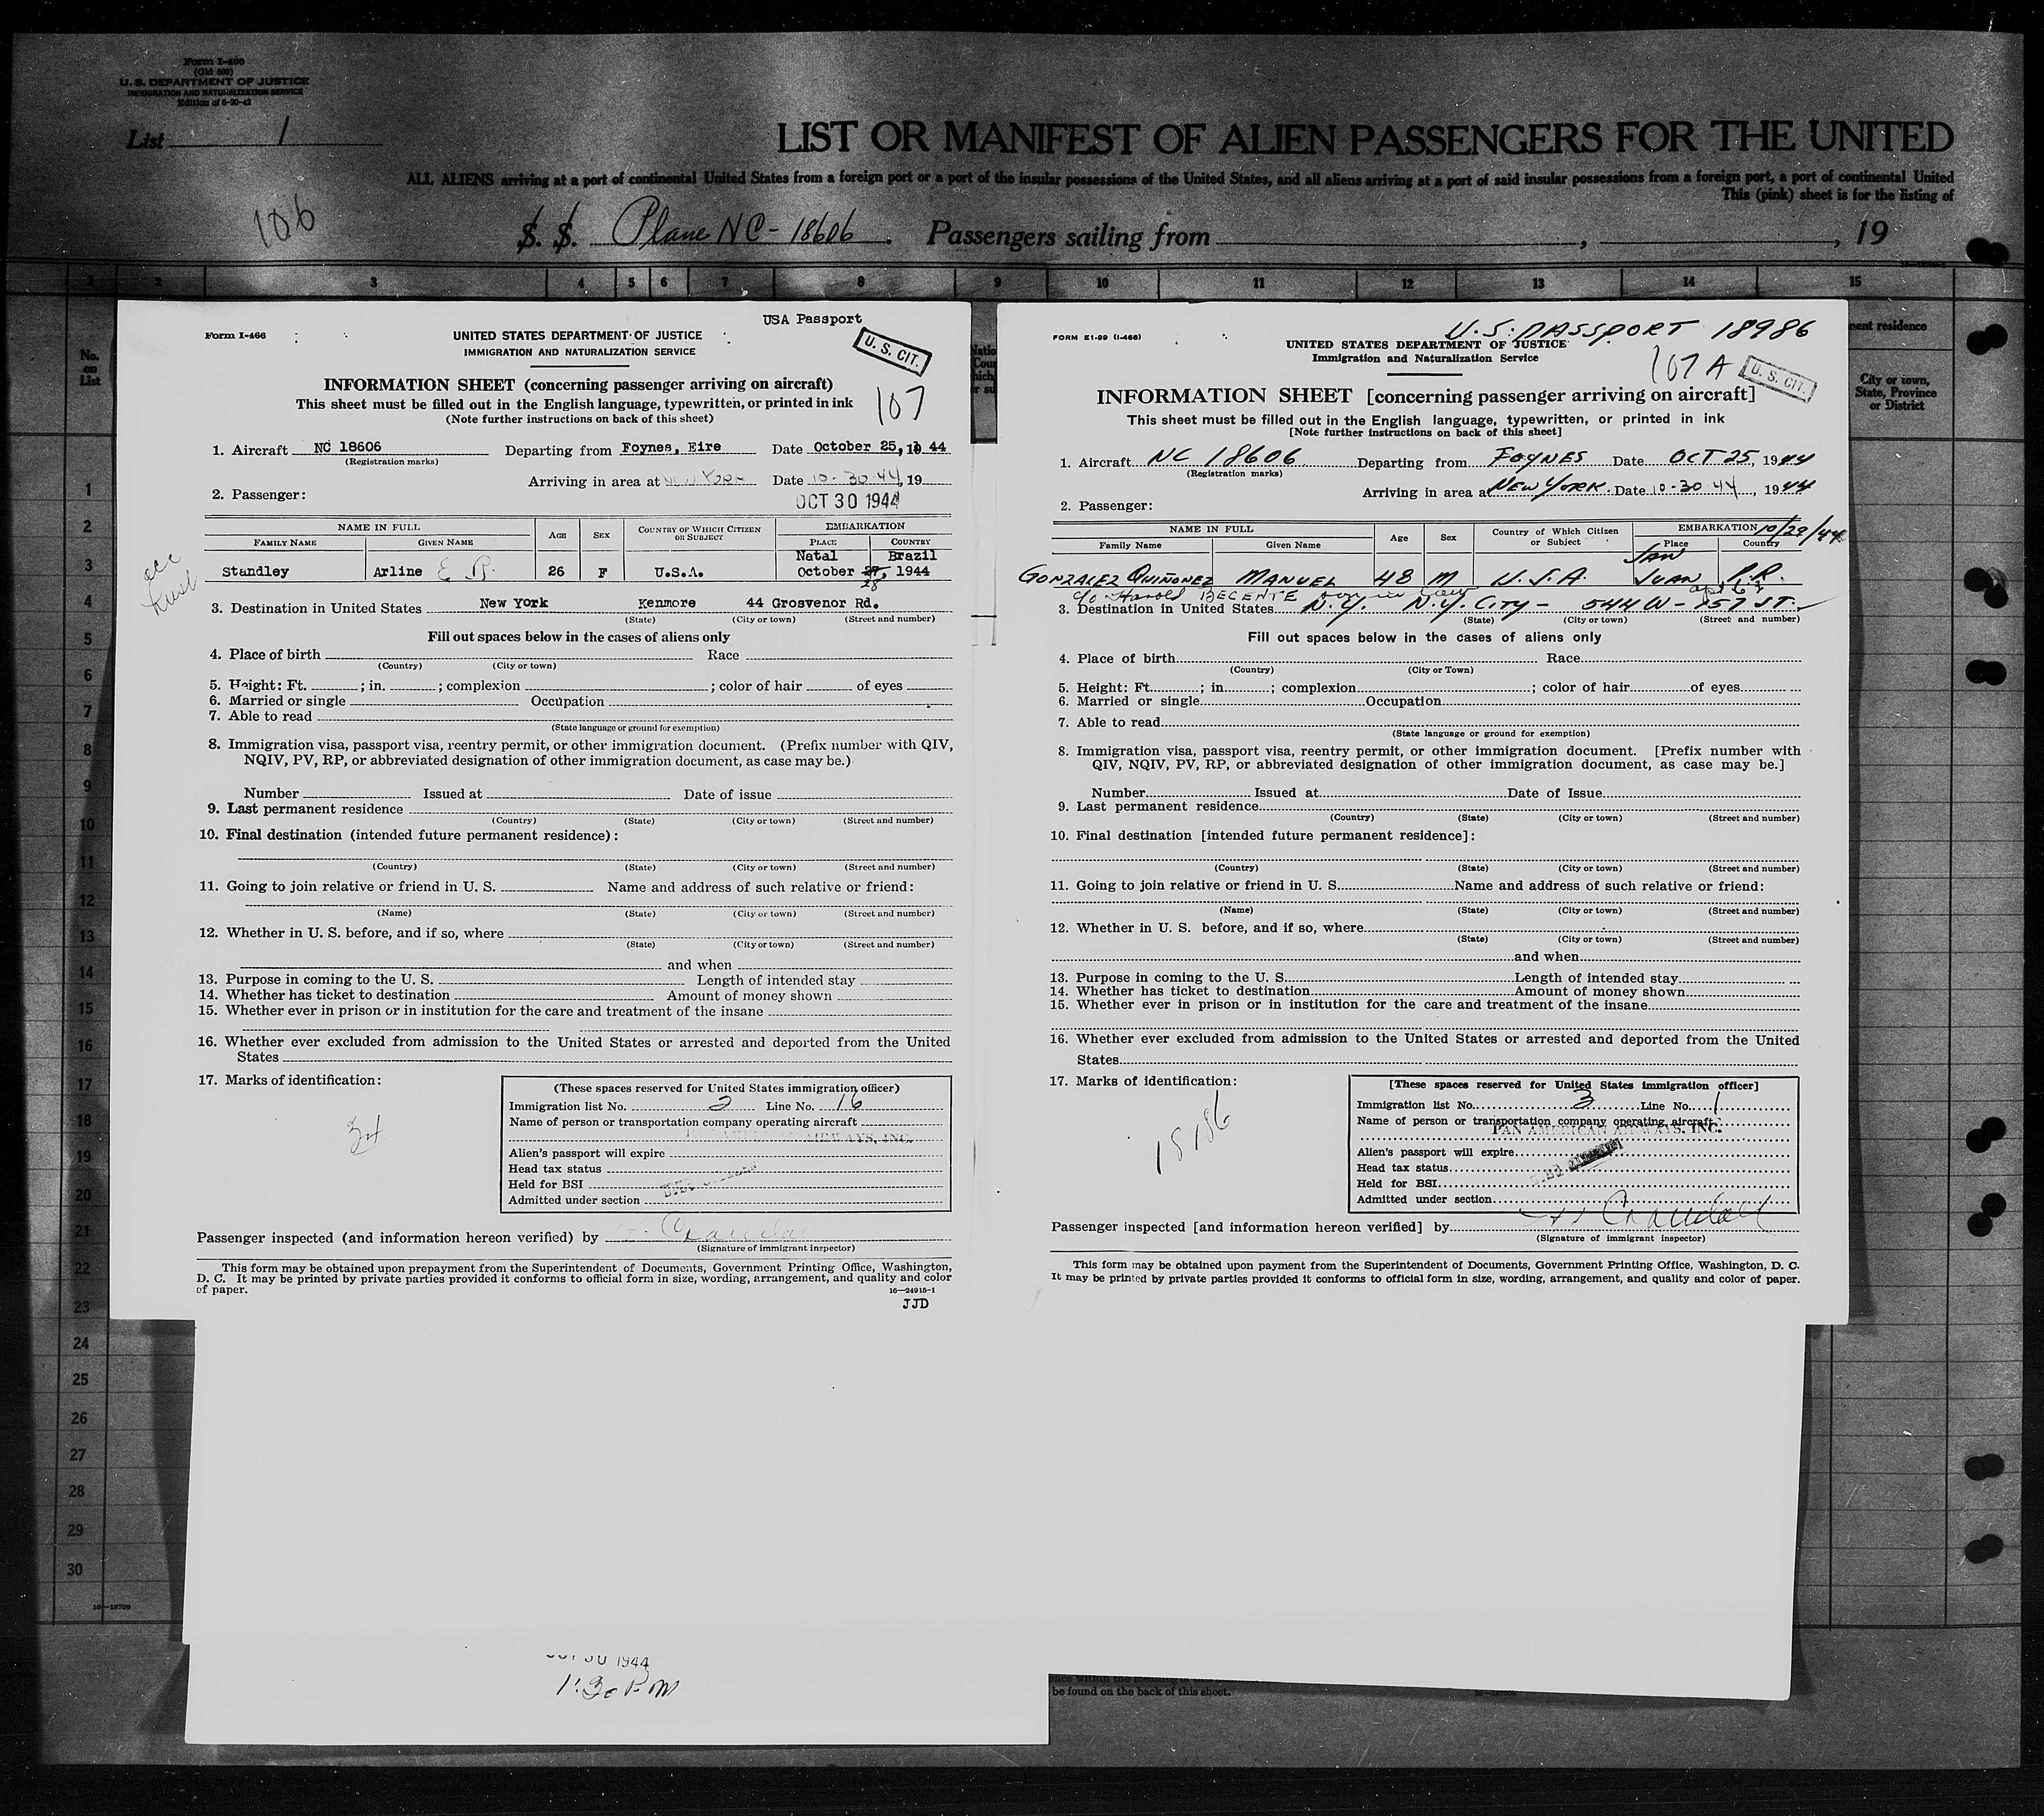 Form I-460
(Old 500)
U. S. DEPARTMENT OF JUSTICE
IMMIGRATION AND NATURALIZATION SERVICE
Edition of 6-20-42
List 1
LIST OR MANIFEST OF ALIEN PASSENGERS FOR THE UNITED
ALL ALIENS arriving at a port of continental United States from a foreign port or a port of the insular possessions of the United States, and all aliens arriving at a port of said insular possessions from a foreign port, a port of continental United
This (pink) sheet is for the listing of
106
S. S. Plane NC-18606 . Passengers sailing from , , 19
1 2 3 4 5 6 7 8 9 10 11 12 13 14 15
No. on List
City or town, State, Province or District
USA Passport
Form I-466
UNITED STATES DEPARTMENT OF JUSTICE
IMMIGRATION AND NATURALIZATION SERVICE
U. S. CIT.
INFORMATION SHEET (concerning passenger arriving on aircraft)
107
This sheet must be filled out in the English language, typewritten, or printed in ink
(Note further instructions on back of this sheet)
1. Aircraft NC 18606 Departing from Foynes, Eire Date October 25, 19 44
(Registration marks)
Arriving in area at New York Date 10-30-44, 19
2. Passenger: OCT 30 1944
NAME IN FULL AGE SEX COUNTRY OF WHICH CITIZEN OR SUBJECT EMBARKATION
FAMILY NAME GIVEN NAME PLACE COUNTRY
Natal Brazil
Standley Arline E R. 26 F U.S.A. October 27, 1944
28
3. Destination in United States New York Kenmore 44 Grosvenor Rd.
(State) (City or town) (Street and number)
Fill out spaces below in the cases of aliens only
4. Place of birth Race
(Country) (City or town)
5. Height: Ft. ; in. ; complexion ; color of hair of eyes
6. Married or single Occupation
7. Able to read
(State language or ground for exemption)
8. Immigration visa, passport visa, reentry permit, or other immigration document. (Prefix number with QIV,
NQIV, PV, RP, or abbreviated designation of other immigration document, as case may be.)
Number Issued at Date of issue
9. Last permanent residence
(Country) (State) (City or town) (Street and number)
10. Final destination (intended future permanent residence):
(Country) (State) (City or town) (Street and number)
11. Going to join relative or friend in U. S. Name and address of such relative or friend:
(Name) (State) (City or town) (Street and number)
12. Whether in U. S. before, and if so, where
(State) (City or town) (Street and number)
and when
13. Purpose in coming to the U. S. Length of intended stay
14. Whether has ticket to destination Amount of money shown
15. Whether ever in prison or in institution for the care and treatment of the insane
16. Whether ever excluded from admission to the United States or arrested and deported from the United
States
17. Marks of identification:
(These spaces reserved for United States immigration officer)
Immigration list No. 2 Line No. 16
Name of person or transportation company operating aircraft
PAN AMERICAN AIRWAYS, INC.
Alien's passport will expire
Head tax status
Held for BSI
Admitted under section
Passenger inspected (and information hereon verified) by
(Signature of immigrant inspector)
This form may be obtained upon prepayment from the Superintendent of Documents, Government Printing Office, Washington,
D. C. It may be printed by private parties provided it conforms to official form in size, wording, arrangement, and quality and color
of paper. 16—24915-1
JJD
U.S. PASSPORT 18986
FORM E1-99 (I-466)
UNITED STATES DEPARTMENT OF JUSTICE
Immigration and Naturalization Service
107 A
U. S. CIT.
INFORMATION SHEET [concerning passenger arriving on aircraft]
This sheet must be filled out in the English language, typewritten, or printed in ink
[Note further instructions on back of this sheet]
1. Aircraft NC 18606 Departing from FOYNES Date OCT 25, 1944
(Registration marks)
Arriving in area at NEW YORK. Date 10-30 44, 1944
2. Passenger:
NAME IN FULL Age Sex Country of Which Citizen or Subject EMBARKATION 10/29/44
Family Name Given Name Place Country
GONZALEZ QUIÑONEZ MANUEL 48 M U.S.A. SAN JUAN P.R.
c/o Harold BECENTE
3. Destination in United States N.Y. N.Y. CITY - 544 W - 157 ST.
(State) (City or town) (Street and number)
Fill out spaces below in the cases of aliens only
4. Place of birth Race
(Country) (City or Town)
5. Height: Ft. ; in ; complexion ; color of hair of eyes
6. Married or single Occupation
7. Able to read
(State language or ground for exemption)
8. Immigration visa, passport visa, reentry permit, or other immigration document. [Prefix number with
QIV, NQIV, PV, RP, or abbreviated designation of other immigration document, as case may be.]
Number Issued at Date of Issue
9. Last permanent residence
(Country) (State) (City or town) (Street and number)
10. Final destination [intended future permanent residence]:
(Country) (State) (City or town) (Street and number)
11. Going to join relative or friend in U. S. Name and address of such relative or friend:
(Name) (State) (City or town) (Street and number)
12. Whether in U. S. before, and if so, where
(State) (City or town) (Street and number)
and when
13. Purpose in coming to the U. S. Length of intended stay
14. Whether has ticket to destination Amount of money shown
15. Whether ever in prison or in institution for the care and treatment of the insane
16. Whether ever excluded from admission to the United States or arrested and deported from the United
States
17. Marks of identification:
18186
[These spaces reserved for United States immigration officer]
Immigration list No. 3 Line No. 1
Name of person or transportation company operating aircraft
PAN AMERICAN AIRWAYS, INC.
Alien's passport will expire
Head tax status
Held for BSI
Admitted under section
Passenger inspected [and information hereon verified] by Crandall
(Signature of immigrant inspector)
This form may be obtained upon payment from the Superintendent of Documents, Government Printing Office, Washington, D. C.
It may be printed by private parties provided it conforms to official form in size, wording, arrangement, and quality and color of paper.
1
2
3
4
5
6
7
8
9
10
11
12
13
14
15
16
17
18
19
20
21
22
23
24
25
26
27
28
29
30
16—18709
OCT 30 1944
1:30 P.M
be found on the back of this sheet.